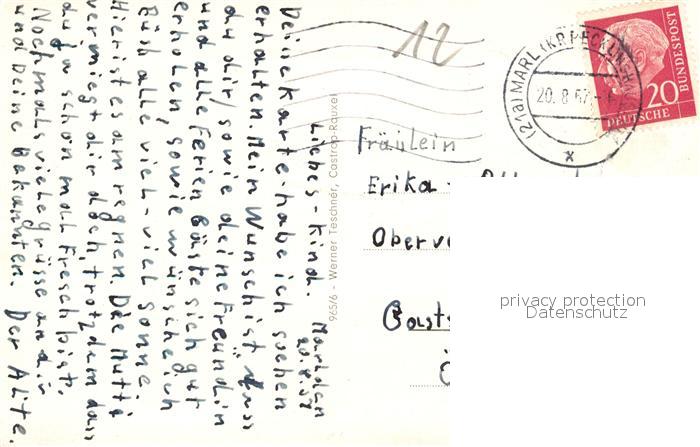 Marl den
20.8.57
Liebes-Kind.
Deine Karte-habe ich soeben
erhalten. Mein Wunsch ist dass
du dir/sowie deine Freundin
und alle Ferien Gäste sich gut
erholen sowie wünsche ich
Euch alle viel-viel Sonne.
Hier ist es am regnen. Die Mutti
vermiegt dir doch, trotzdem dass
du ja schön mach Fresch bist.
Nochmals viele grüsse an dir
und Deine Bekannten. Der Alte.
965/6 - Werner Teschner, Castrop-Rauxel
12
(21a) MARL (KR RECKLINGH
20.8.57
20
DEUTSCHE
BUNDESPOST
Fräulein
Erika
Oberv
Gasts
privacy protection
Datenschutz